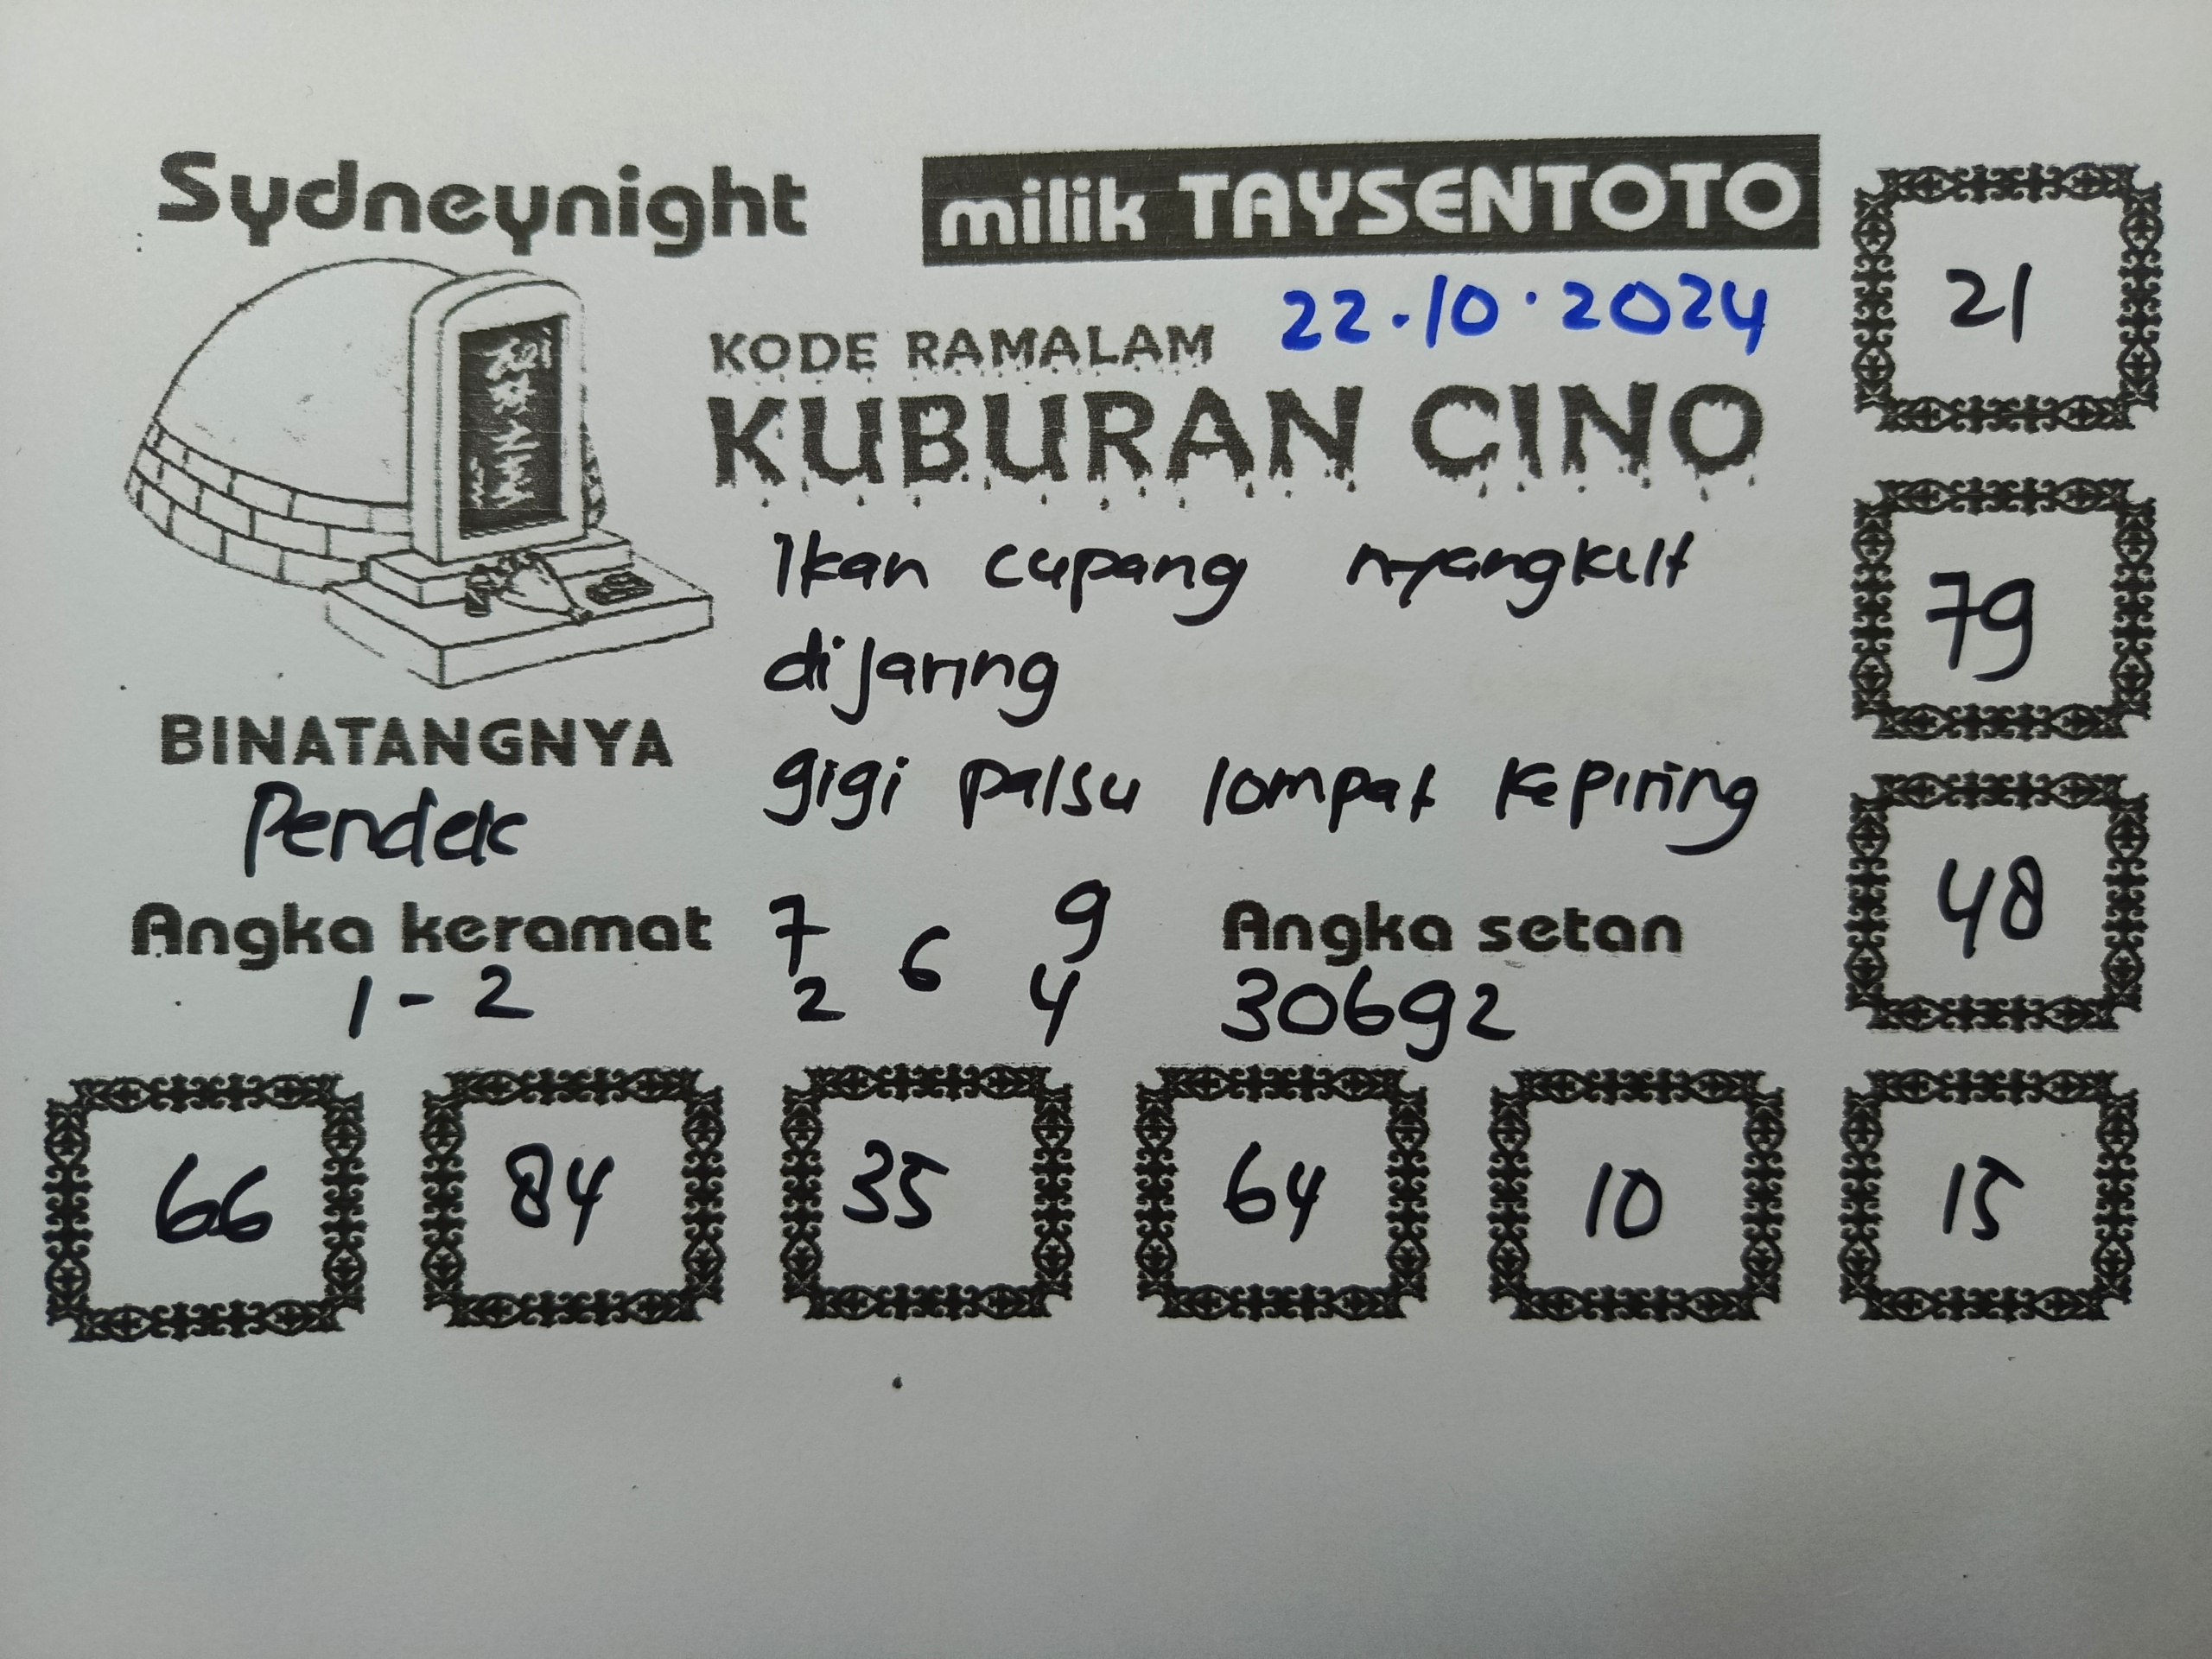 Sydneynight
milik TAYSENTOTO
22.10.2024
KODE RAMALAM
KUBURAN CINO
Ikan cupang nyangkut
dijaring
gigi palsu lompat kepiring
BINATANGNYA
Pendek
Angka keramat
1-2
7 9
6
2 4
Angka setan
30692
21
79
48
66 84 35 64 10 15